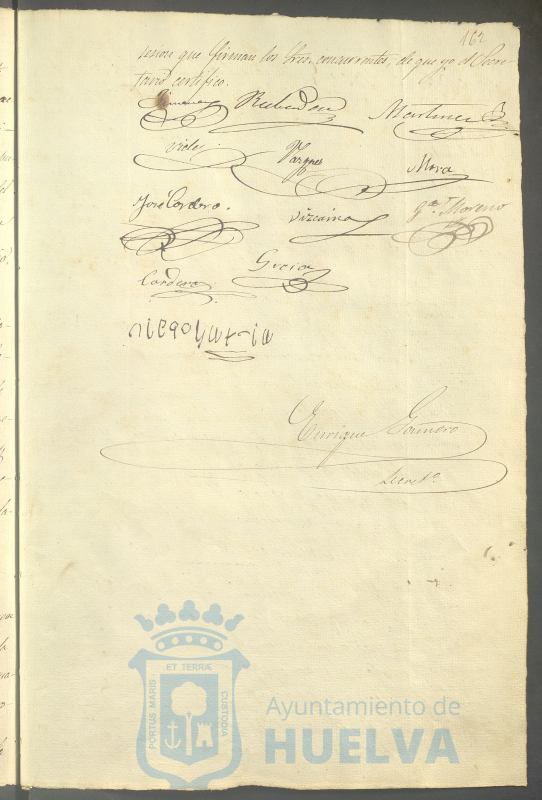 162
que firman los Sres. concurrentes, de que yo el Secre-
tario certifico.
Jimenez Martinez
Vides Vazquez Mora
José Cordero. Vizcaino Ga. Moreno
Cordero Garcia
Enrique Gamero
Secreto.
PORTUS MARIS ET TERRÆ CUSTODIA
Ayuntamiento de
HUELVA